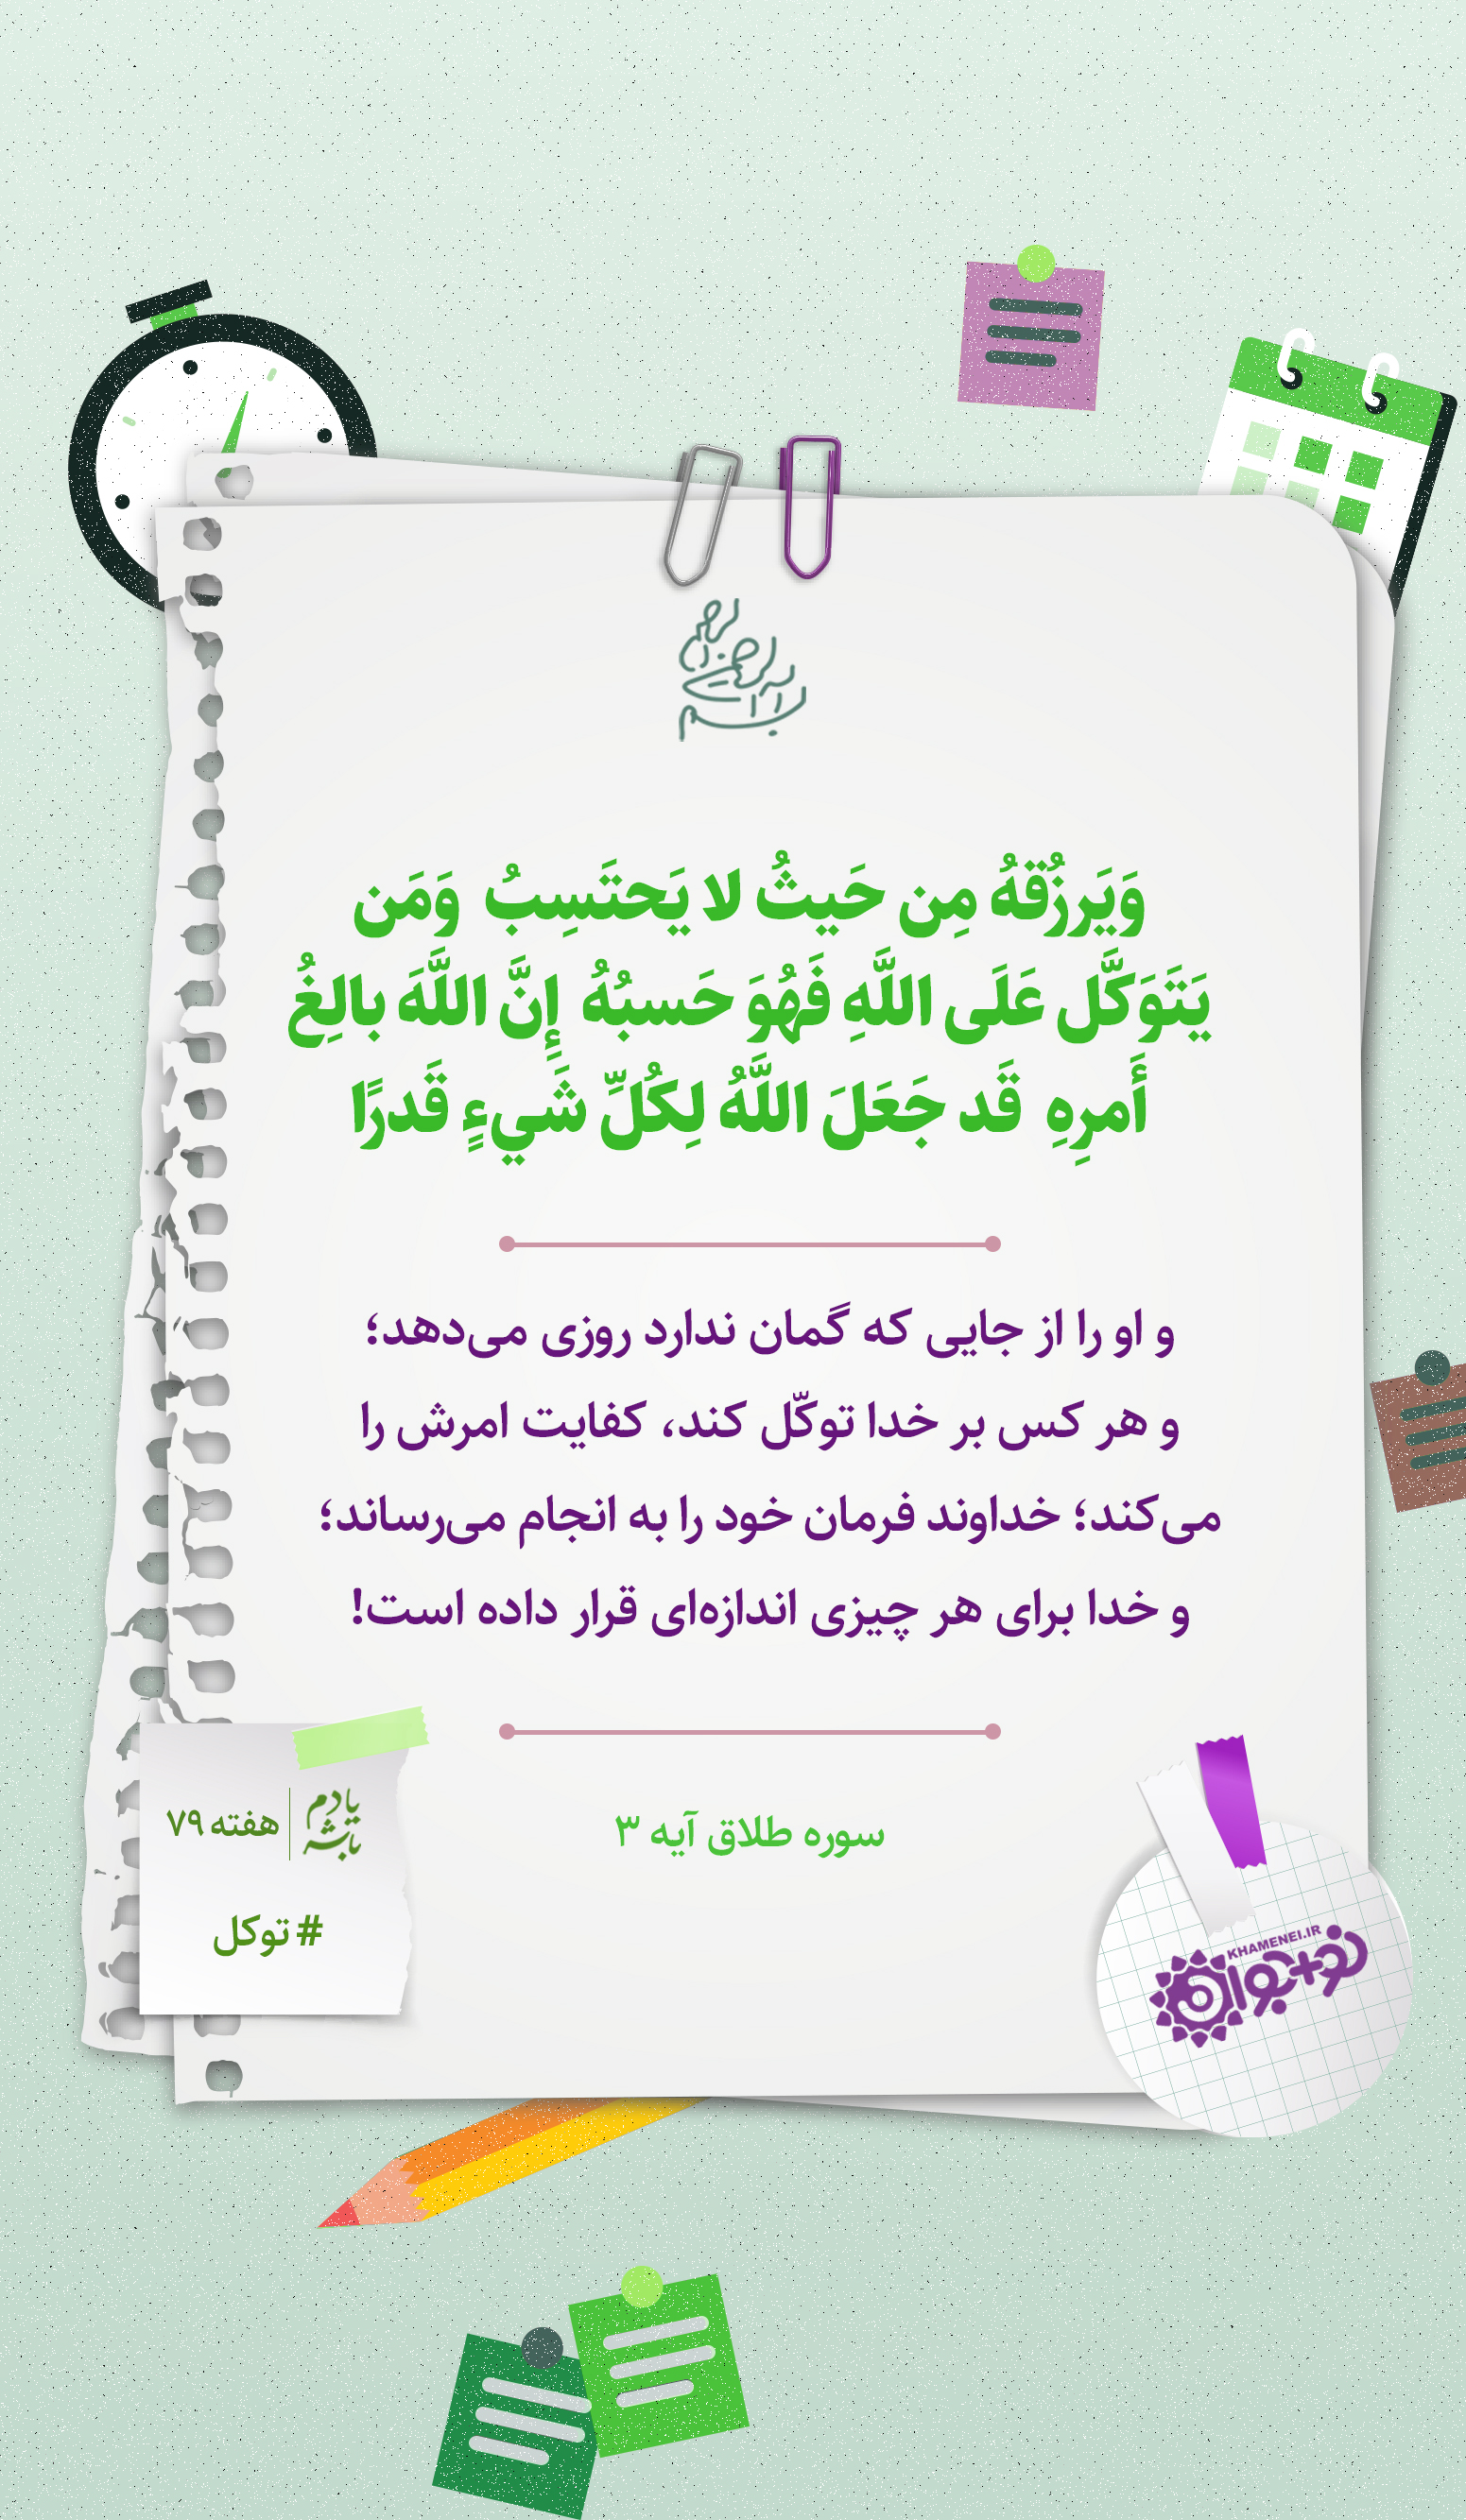 بسم الله الرحمن الرحیم
وَيَرزُقهُ مِن حَيثُ لا يَحتَسِبُ وَمَن
يَتَوَكَّل عَلَى اللَّهِ فَهُوَ حَسبُهُ إِنَّ اللَّهَ بالِغُ
أَمرِهِ قَد جَعَلَ اللَّهُ لِكُلِّ شَيءٍ قَدرًا
و او را از جایی که گمان ندارد روزی می‌دهد؛
و هر کس بر خدا توکّل کند، کفایت امرش را
می‌کند؛ خداوند فرمان خود را به انجام می‌رساند؛
و خدا برای هر چیزی اندازه‌ای قرار داده است!
سوره طلاق آیه ۳
یادم باشه
هفته ۷۹
# توکل
KHAMENEI.IR
نو+جوان